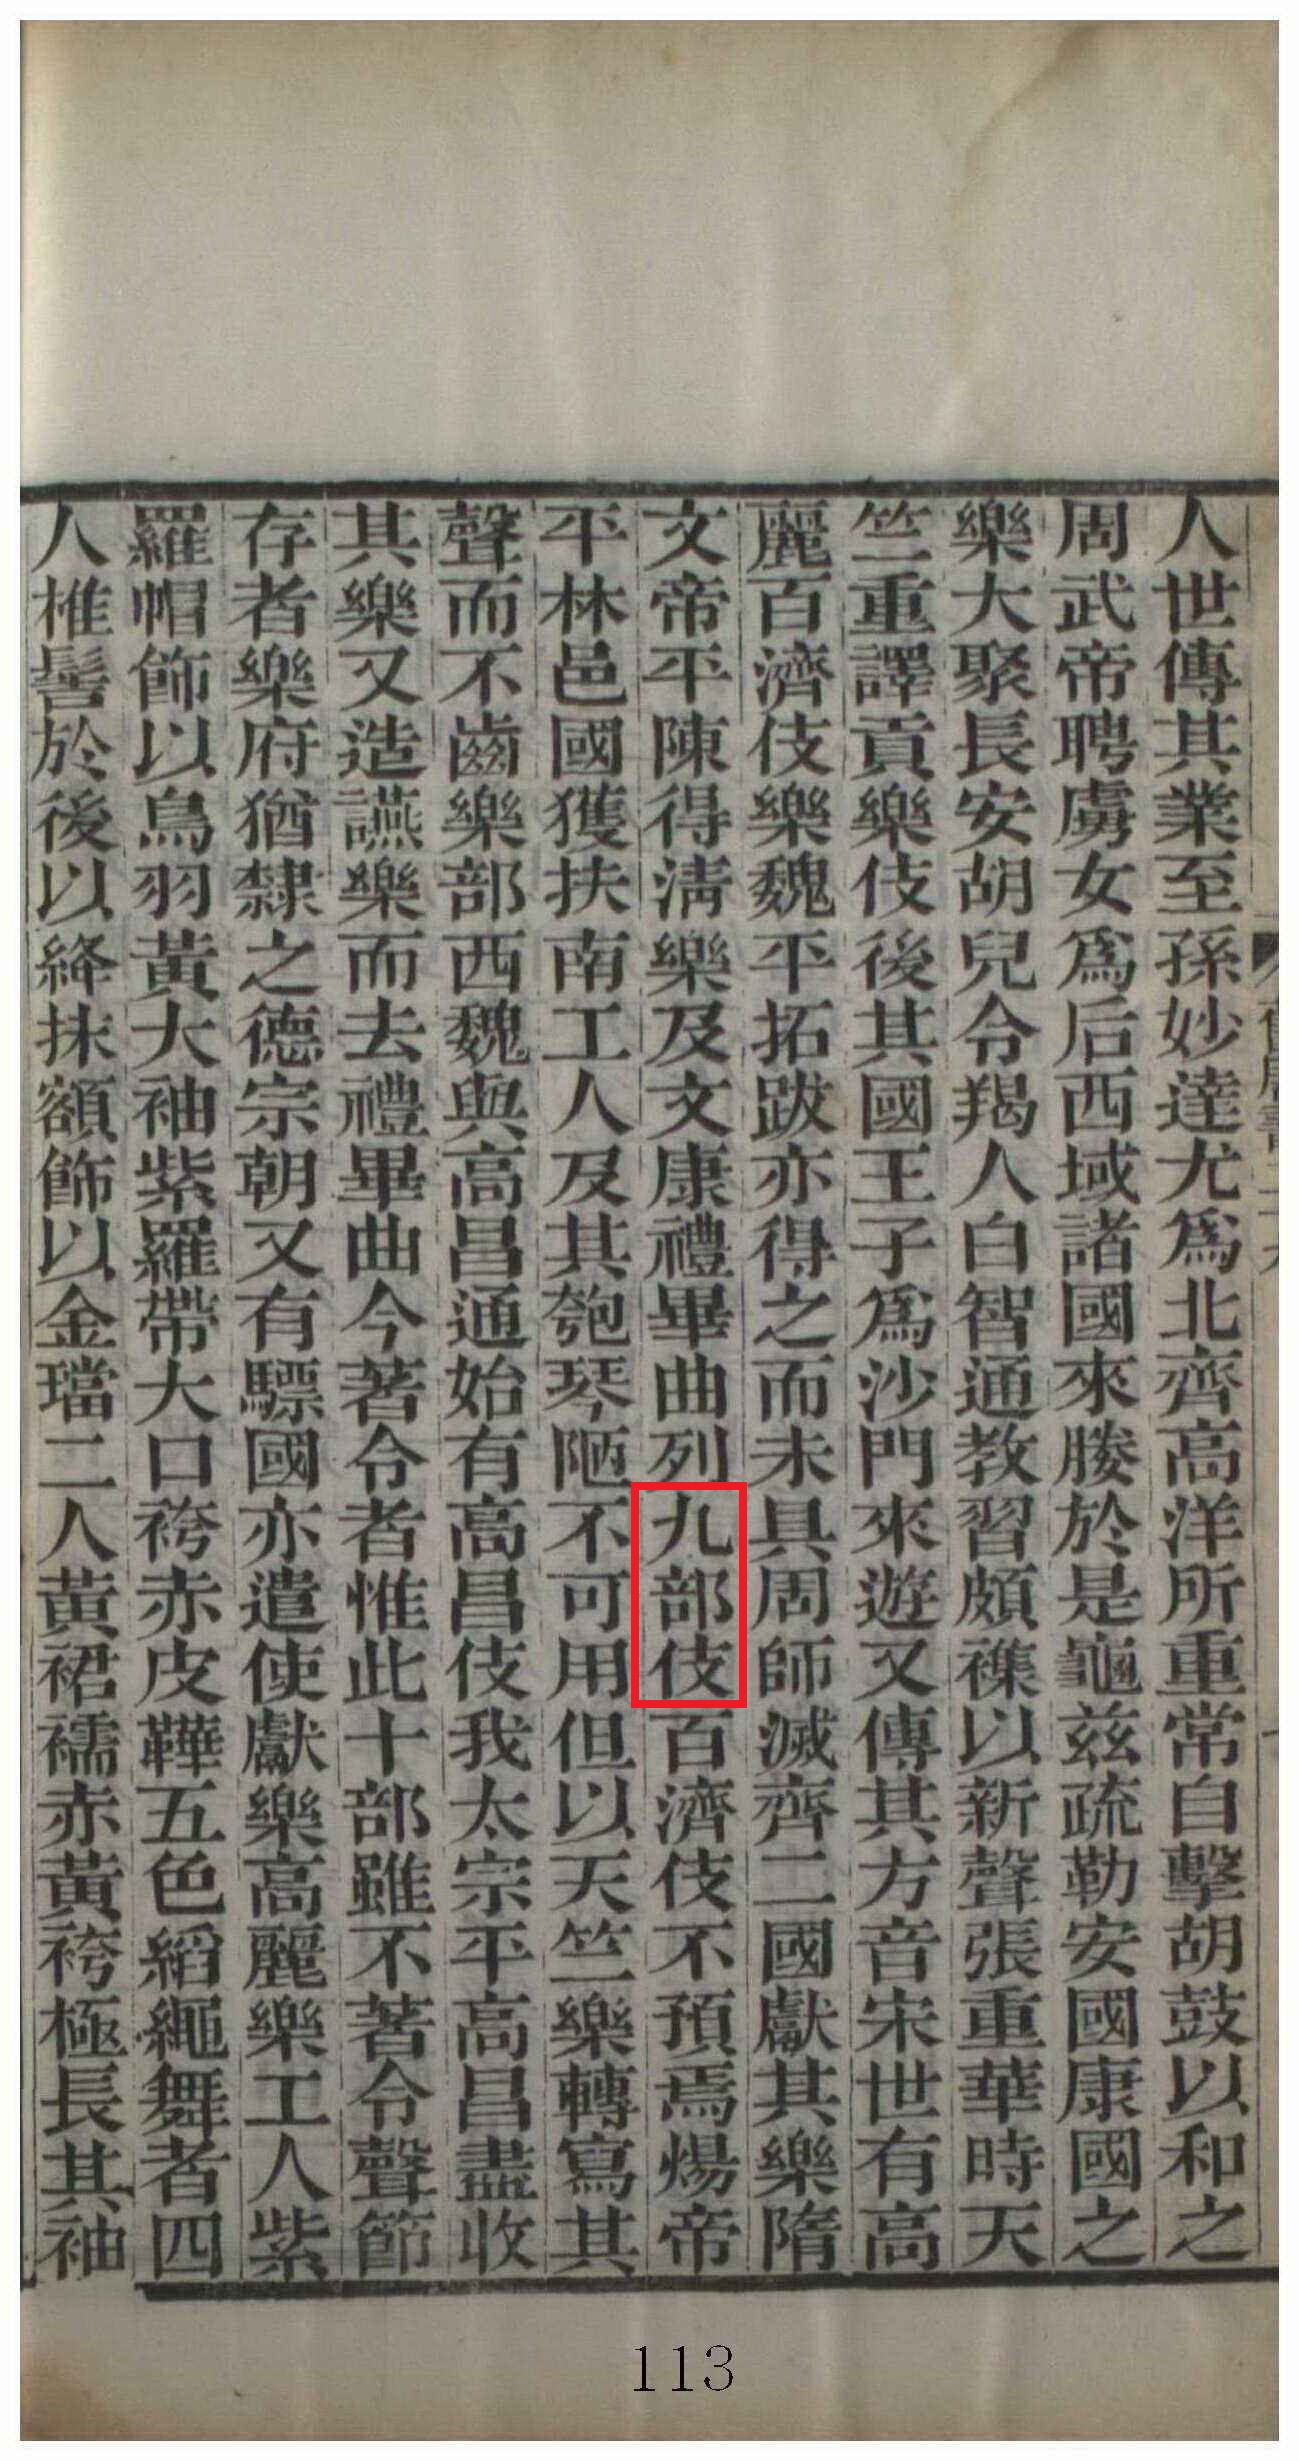 人世傳其業至孫妙達尤爲北齊高洋所重常自擊胡鼓以和之
周武帝聘虜女爲后西域諸國來媵於是龜茲疏勒安國康國之
樂大聚長安胡兒令羯人白智通教習頗襍以新聲張重華時天
竺重譯貢樂伎後其國王子爲沙門來遊又傳其方音宋世有高
麗百濟伎樂魏平拓跋亦得之而未具周師滅齊二國獻其樂隋
文帝平陳得淸樂及文康禮畢曲列九部伎百濟伎不預焉煬帝
平林邑國獲扶南工人及其匏琴陋不可用但以天竺樂轉寫其
聲而不齒樂部西魏與高昌通始有高昌伎我太宗平高昌盡收
其樂又造讌樂而去禮畢曲今著令者惟此十部雖不著令聲節
存者樂府猶隸之德宗朝又有驃國亦遣使獻樂高麗樂工人紫
羅帽飾以鳥羽黃大袖紫羅帶大口袴赤皮鞾五色縚繩舞者四
人椎髻於後以絳抹額飾以金璫二人黃裙襦赤黃袴極長其袖
113